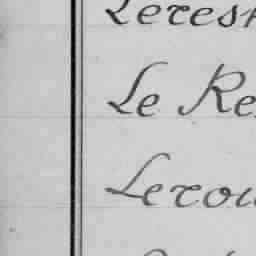 Leres
Le Re
Lerou